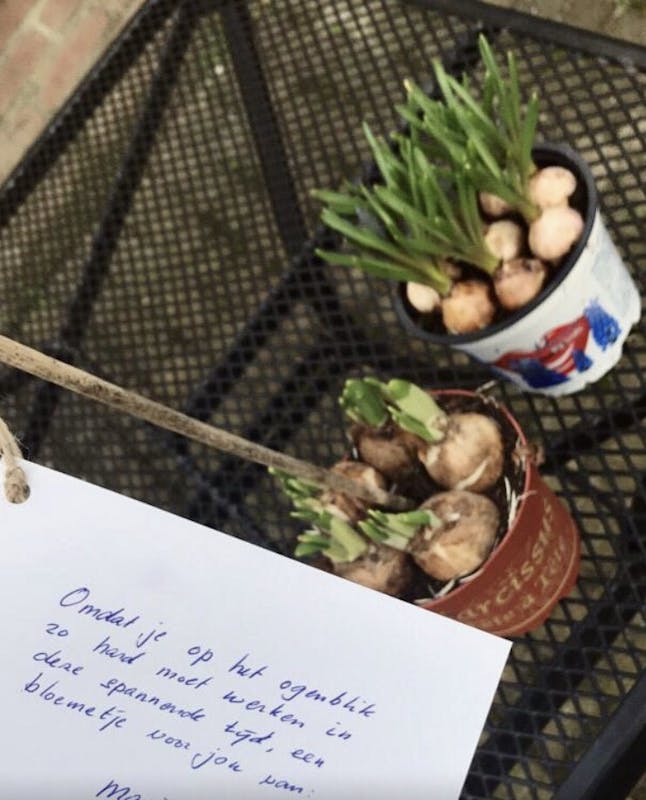 Omdat je op het ogenblik
zo hard moet werken in
deze spannende tijd, een
bloemetje voor jou van:
arcissus
Tête à Tête